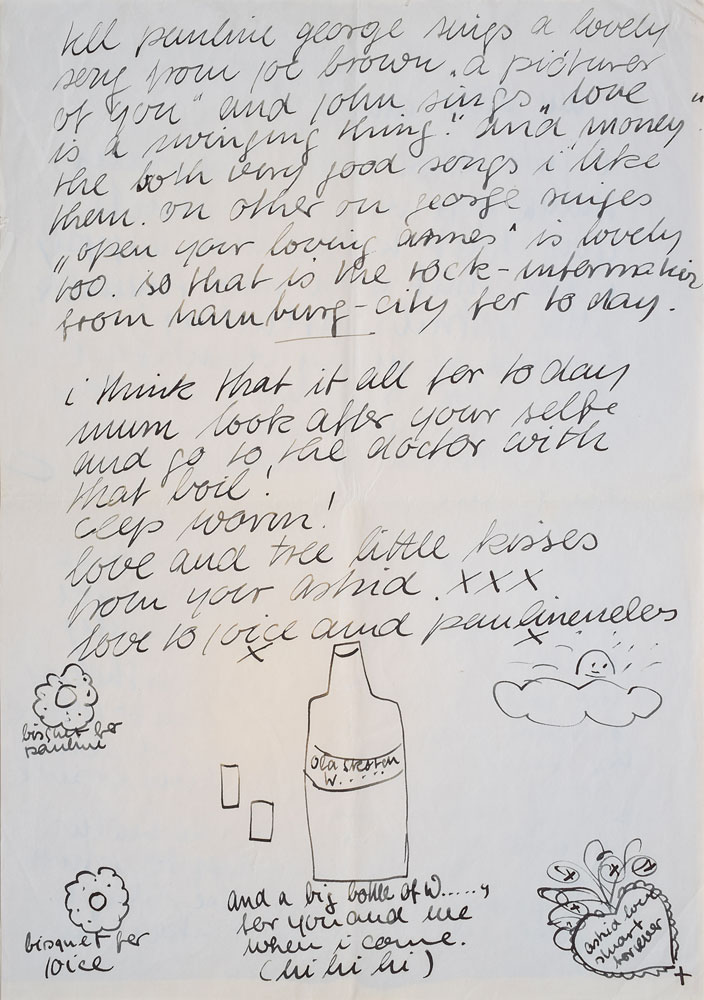 tell pauline george sings a lovely
song from joe brown „a picturer
of you" and john sings „love
is a swinging thing!" and „money"
the both very good songs i like
them. on other on george singes
„open your loving armes" is lovely
too. so that is the rock-information
from hamburg-city for to day.
i think that it all for to day
mum look after your selfe
and go to the doctor with
that boil!
ceep warm!
love and tree little kisses
from your astrid. XXX
love to joice and paulinendels
x x
bisquet for
pauline
Old skoten
W......
and a big bottle of W.....y
for you and me
when i come.
(hi hi hi)
bisquet fer
joice
astrid love
stuart
forever